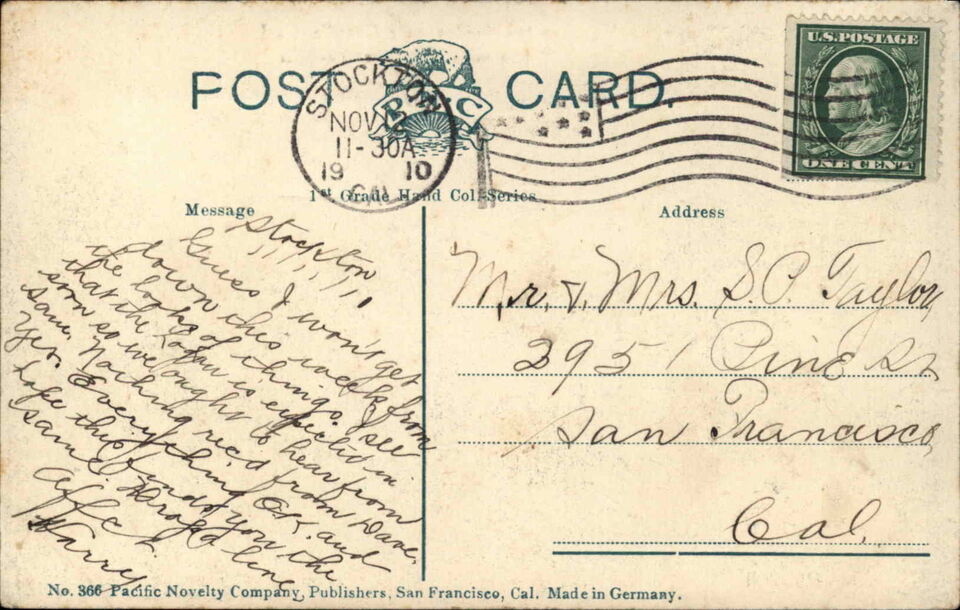 POST CARD.
STOCKTON
NOV
11-30A
19 10
CAL.
B C
U.S. POSTAGE
ONE CENT
1st Grade Hand Col. Series
Message
Address
Stockton,
Guess I won't get
down this week from
the looks of things. I see
that the Logan is expected in
soon so we ought to hear from
same. Nothing rec'd from Dave
Yet. Everything O.K. and
hope this finds you the
same. Drop a line
Aff
Harry
Mr. & Mrs. S.P. Taylor
2951 Pine St
San Francisco
Cal.
No. 366 Pacific Novelty Company, Publishers, San Francisco, Cal. Made in Germany.